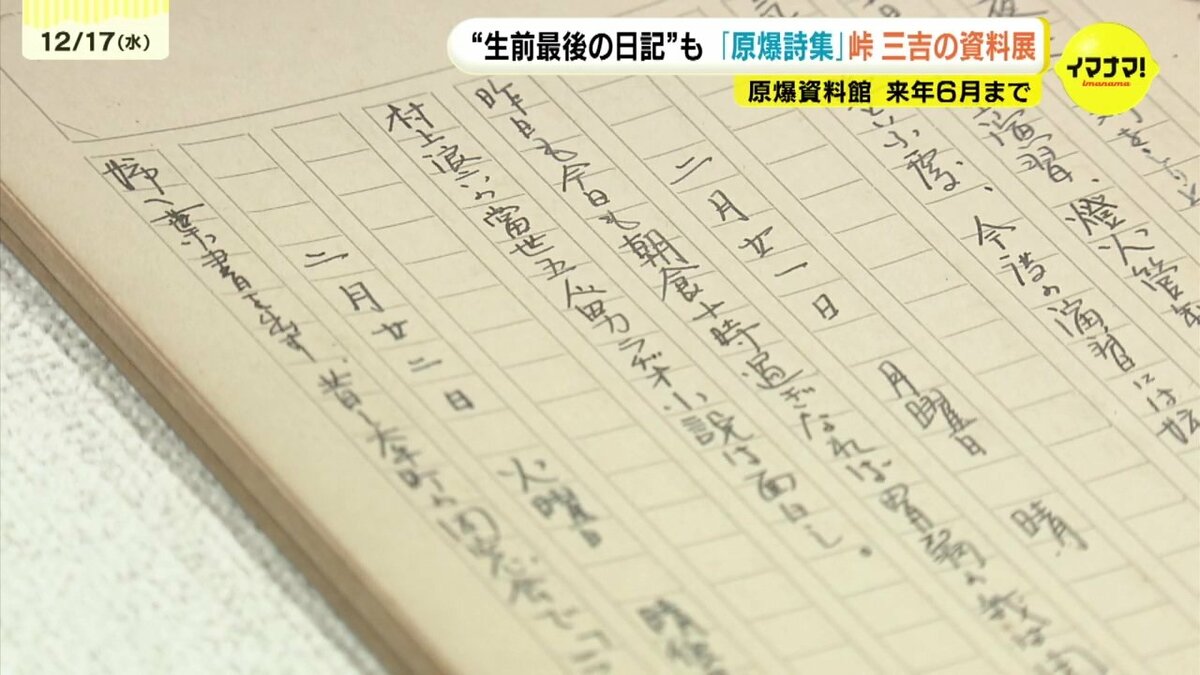 12/17(水)
“生前最後の日記”も 「原爆詩集」峠 三吉の資料展
原爆資料館 来年6月まで
イマナマ!
imanama
演習、燈火管
今謢の演習には
二月廿一日 月曜日 晴
昨日も今日も朝食十時過ぎなれば胃弱の我は
村上浪六の當世五人男ラヂオ小説は面白し。
二月廿二日 火曜日 晴
姉へ葉書を出す 昔し大手町の同窓会で「